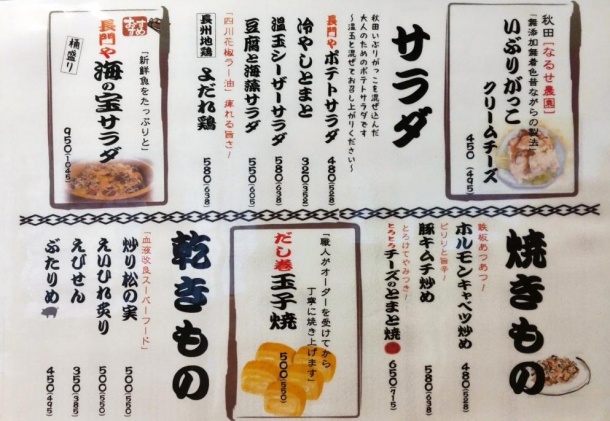 秋田［なるせ農園］
〈無添加無着色昔ながらの製法〉
いぶりがっこ
クリームチーズ
450（495）
サラダ
秋田いぶりがっこを混ぜ込んだ
大人のためのポテトサラダです
〜温玉と混ぜてお召し上がりください〜
長門やポテトサラダ
480（528）
冷やしとまと
320（352）
温玉シーザーサラダ
580（638）
豆腐と海藻サラダ
550（605）
「四川花椒ラー油」痺れる旨さ！
長州地鶏 よだれ鶏
580（638）
おすすめ
「新鮮魚をたっぷりと」
長門や海の宝サラダ
桶盛り
950（1045）
焼きもの
鉄板あつあつ！
ホルモンキャベツ炒め
480（528）
ピリリと旨辛！
豚キムチ炒め
580（638）
とろけてやみつき！
とろとろチーズのとまと焼
650（715）
「職人がオーダーを受けてから
丁寧に焼き上げます」
だし巻玉子焼
500（550）
乾きもの
「血液改良スーパーフード」
炒り松の実
500（550）
えいひれ炙り
500（550）
えびせん
350（385）
ぶたりめ
450（495）